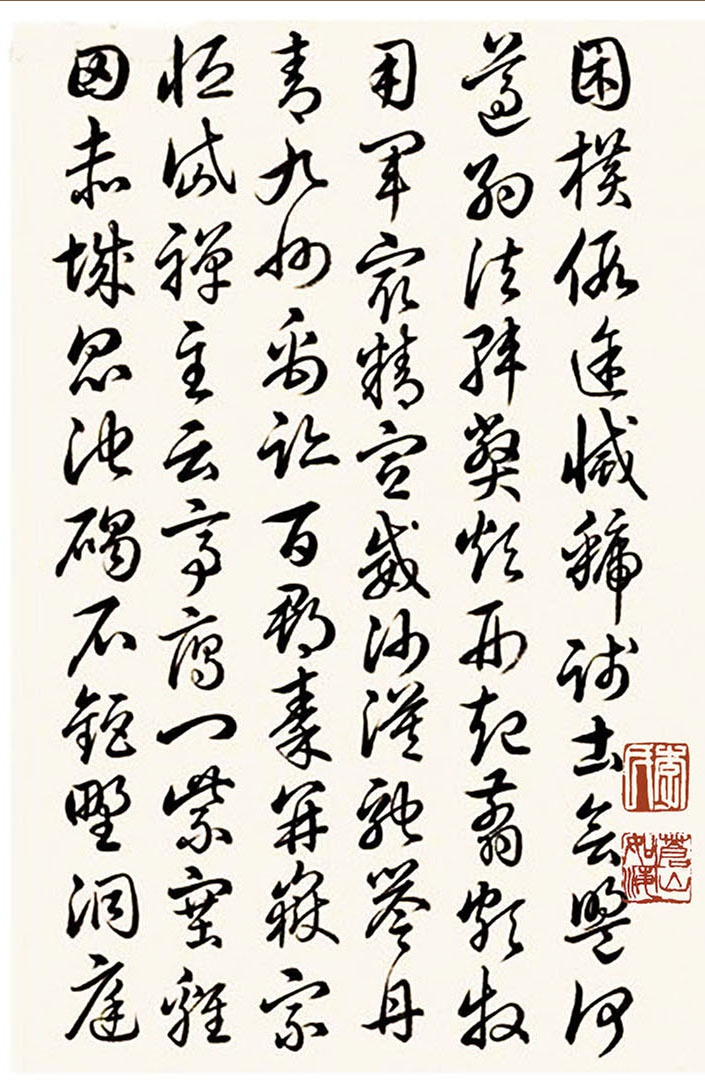 困橫假途滅虢踐土會盟何
遵約法韓弊煩刑起翦頗牧
用軍最精宣威沙漠馳譽丹
青九州禹跡百郡秦并嶽宗
恒岱禪主云亭雁門紫塞雞
田赤城昆池碣石鉅野洞庭
蒼山如海